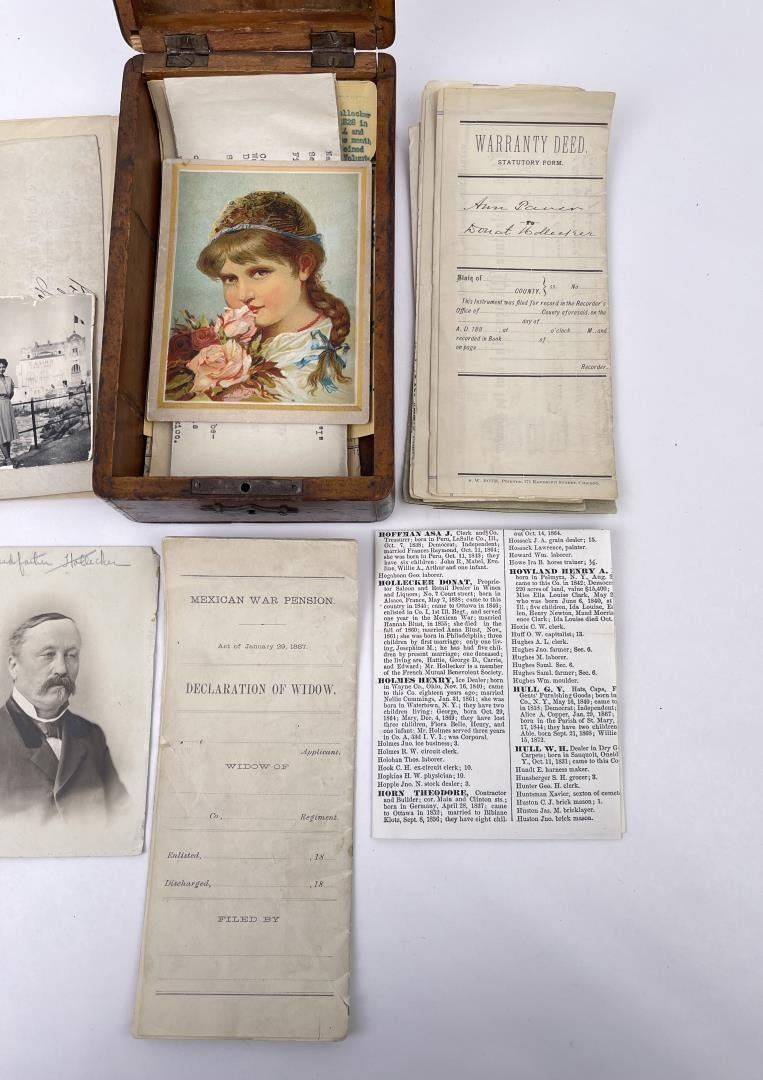 ollecker
1828 in
and
e month
oined
Volunte
WARRANTY DEED.
STATUTORY FORM.
Ann
TO
Donat Hollecker
State of
COUNTY, } ss. No
This Instrument was filed for record in the Recorder's
Office of County aforesaid, on the
day of
A. D. 180 , at o'clock M., and
recorded in Book of
on page
Recorder.
CASINO
Hollecker
MEXICAN WAR PENSION.
Act of January 29, 1887.
DECLARATION OF WIDOW.
Applicant,
WIDOW OF
Co, Regiment.
Enlisted, , 18
Discharged, , 18
FILED BY
HOFFMAN ASA J, Clerk and Co.
Treasurer; born in Peru, LaSalle Co., Ill.,
Oct. 7, 1838; Democrat; Independent;
married Frances Raymond, Oct. 11, 1864;
she was born in Peru, Oct. 11, 1843; they
have six children: John R., Mabel, Eve-
line, Willie A., Arthur and one infant.
Hogaboon Geo. laborer.
HOLLECKER DONAT, Proprie-
tor Saloon and Retail Dealer in Wines
and Liquors; No. 7 Court street; born in
Alsace, France, May 7, 1828; came to this
country in 1845; came to Ottawa in 1846;
enlisted in Co. I, 1st Ill. Regt., and served
one year in the Mexican War; married
Hannah Blust, in 1855; she died in the
fall of 1860; married Anna Blust, Nov.,
1861; she was born in Philadelphia; three
children by first marriage; only one liv-
ing, Josephine M.; he has had five chil-
dren by present marriage; one deceased;
the living are, Hattie, George D., Carrie,
and Edward; Mr. Hollecker is a member
of the French Mutual Benevolent Society.
HOLMES HENRY, Ice Dealer; born
in Wayne Co., Ohio, Nov. 16, 1840; came
to this Co. eighteen years ago; married
Nellie Cummings, Jan. 31, 1861; she was
born in Watertown, N. Y.; they have two
children living: George, born Oct. 29,
1864; Mary, Dec. 4, 1869; they have lost
three children, Flora Belle, Henry, and
one infant; Mr. Holmes served three years
in Co. A, 53d I. V. I.; was Corporal.
Holmes Jno. ice business; 3.
Holmes R. W. circuit clerk;
Holohan Thos. laborer.
Hook C. H. ex-circuit clerk; 10.
Hopkins H. W. physician; 10.
Hopple Jno. N. stock dealer; 3.
HORN THEODORE, Contractor
and Builder; cor. Main and Clinton sts.;
born in Germany, April 28, 1837; came
to Ottawa in 1852; married to Bibiane
Klotz, Sept. 8, 1856; they have eight chil-
out Oct. 14, 1864.
Hossack J. A. grain dealer; 15.
Hossack Lawrence, painter.
Howard Wm. laborer.
Howe Ira B. horse trainer;
HOWLAND HENRY A.
born in Palmyra, N. Y., Aug.
came to this Co. in 1842; Democrat
220 acres of land, value $15,400;
Miss Ella Louise Clark, May 2
who was born June 6, 1840, at
Ill.; five children, Ida Louise, E
len, Henry Newton, Maud Morris
ence Clark; Ida Louise died Oct.
Hoxie C. W. clerk.
Huff O. W. capitalist; 13.
Hughes A. L. clerk.
Hughes Jno. farmer; Sec. 6.
Hughes M. laborer.
Hughes Saml. Sec. 6.
Hughes Saml. farmer; Sec. 6.
Hughes Wm. moulder.
HULL G. V. Hats, Caps, F
Gents' Furnishing Goods; born in
Co., N. Y., May 16, 1840; came
in 1858; Democrat; Independent;
Alice A. Copper, Jan. 29, 1867;
born in the Parish of St. Mary,
17, 1844; they have two children
Able, born Sept. 21, 1868; Willie
15, 1872.
HULL W. H. Dealer in Dry G
Carpets; born in Sauquoit, Oneid
Y., Oct. 11, 1831; came to this Co
Hundt E. harness maker.
Hunsberger S. H. grocer; 3.
Hunter Geo. H. clerk.
Huntsman Xavier, sexton of cemet
Huston C. J. brick mason; 1.
Huston Jas. M. bricklayer.
Huston Jno. brick mason.